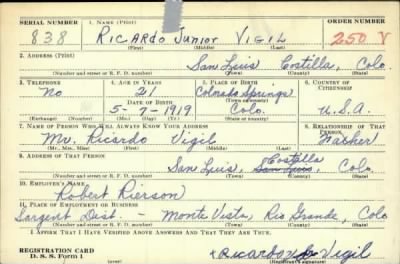 SERIAL NUMBER
1. NAME (Print)
ORDER NUMBER
838
RICARDO JUNIOR VIGIL
250 V
(First) (Middle) (Last)
2. ADDRESS (Print)
San Luis Costilla, Colo.
(Number and street or R. F. D. number) (Town) (County) (State)
3. TELEPHONE
4. AGE IN YEARS
5. PLACE OF BIRTH
6. COUNTRY OF CITIZENSHIP
No
21
Colorado Springs
DATE OF BIRTH
5-9-1919
Colo.
U.S.A.
(Exchange) (Number) (Mo.) (Day) (Yr.) (State or country)
7. NAME OF PERSON WHO WILL ALWAYS KNOW YOUR ADDRESS
8. RELATIONSHIP OF THAT PERSON
Mr. Ricardo Vigil
Father
(Mr., Mrs., Miss) (First) (Middle) (Last)
9. ADDRESS OF THAT PERSON
Costilla
San Luis, San Luis, Colo.
(Number and street or R. F. D. number) (Town) (County) (State)
10. EMPLOYER'S NAME
Robert Rierson
11. PLACE OF EMPLOYMENT OR BUSINESS
Sargent Dist. - Monte Vista, Rio Grande, Colo
(Number and street or R. F. D. number) (Town) (County) (State)
I AFFIRM THAT I HAVE VERIFIED ABOVE ANSWERS AND THAT THEY ARE TRUE.
REGISTRATION CARD
D. S. S. Form 1
Ricardo Jr Vigil